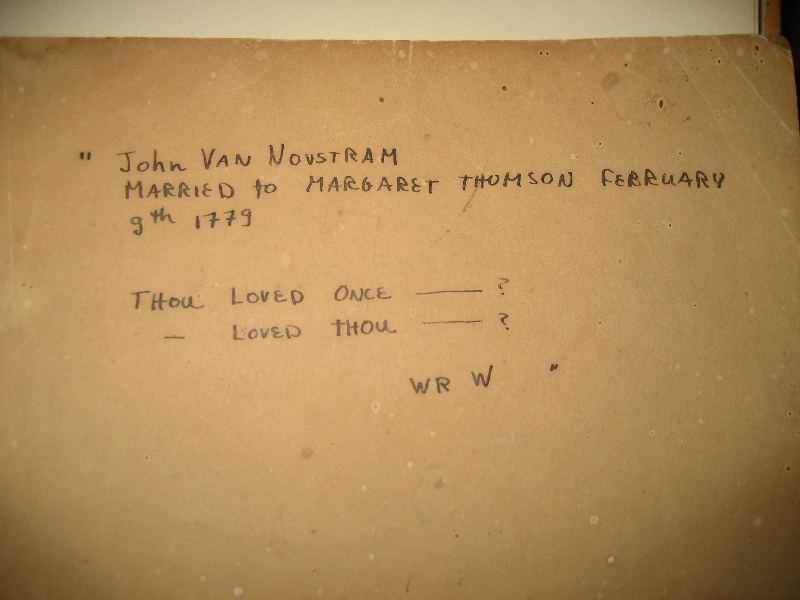 " John VAN NOVSTRAM
MARRIED to MARGARET THOMSON FEBRUARY
9th 1779
THOU LOVED ONCE —— ?
— LOVED THOU —— ?
WR W "